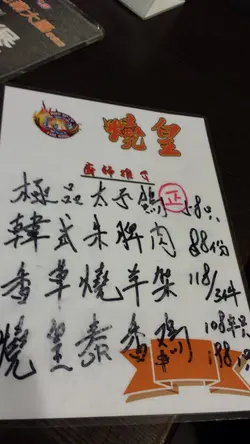 燒皇
廚師推介
極品太子鴿 正 58只
韓式朱脾肉 88份
香草燒羊架 118/3件
燒皇泰香鷄 108半只
198